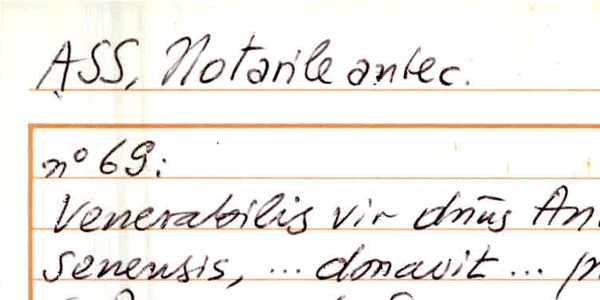 ASS, Notarile antec.
nº 69:
Venerabilis vir dn̄us An
Senensis, ... donavit ... p